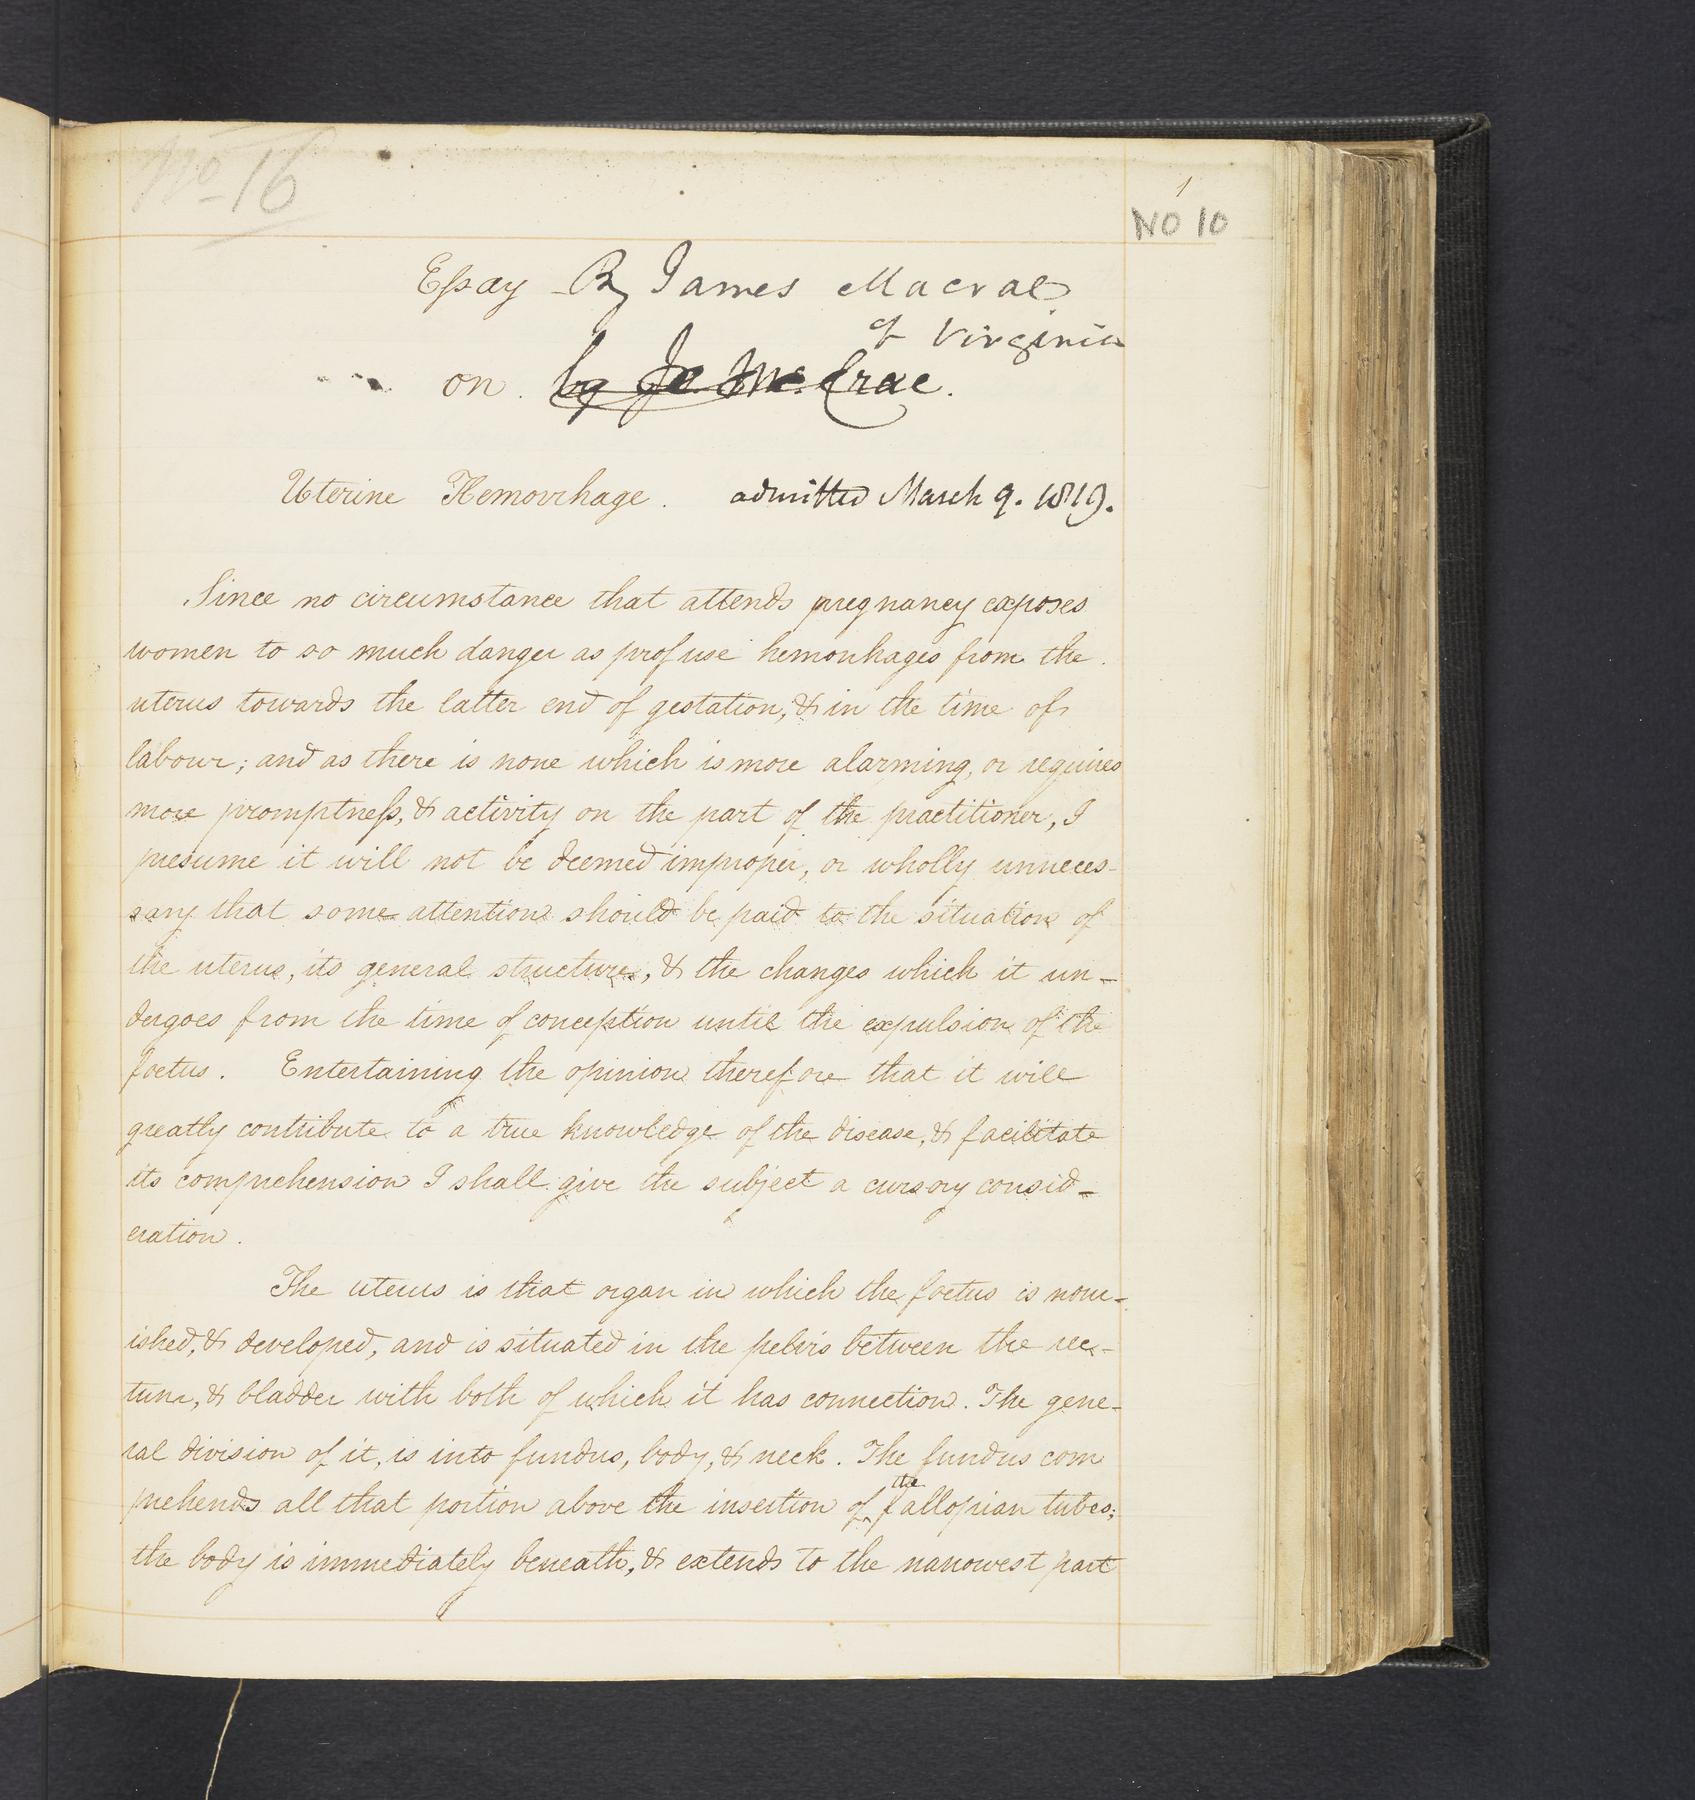 No 16
1
NO 10
Essay By James Macrae
of Virginia
on by Ja Mc.Crae.
Uterine Hemorrhage. admitted March 9. 1819.
Since no circumstance that attends pregnancy exposes
women to so much danger as profuse hemorrhages from the
uterus towards the latter end of gestation, & in the time of
labour; and as there is none which is more alarming, or requires
more promptness, & activity on the part of the practitioner, I
presume it will not be deemed improper, or wholly unneces-
sary that some attention should be paid to the situation of
the uterus, its general structure, & the changes which it un-
dergoes from the time of conception until the expulsion of the
foetus. Entertaining the opinion therefore that it will
greatly contribute to a true knowledge of the disease, & facilitate
its comprehension I shall give the subject a cursory consid-
eration.
The uterus is that organ in which the foetus is nour-
ished, & developed, and is situated in the pelvis between the rec-
tum, & bladder with both of which it has connection. The gene-
ral division of it, is into fundus, body, & neck. The fundus com
prehends all that portion above the insertion of the fallopian tubes;
the body is immediately beneath, & extends to the narrowest part